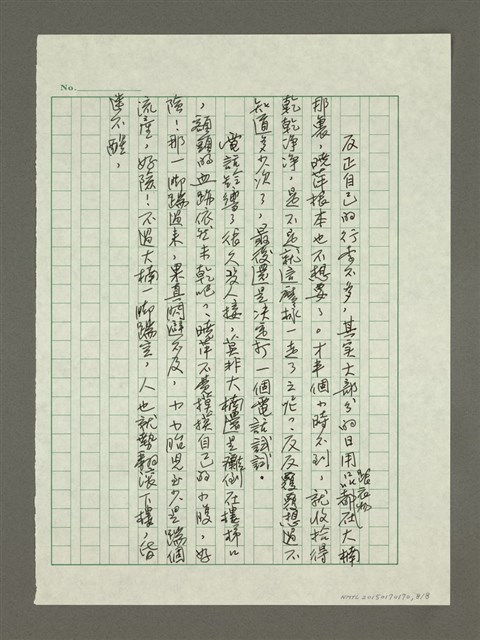 No.
反正自己的行李不多，其實大部分的日用品跟衣物都在大楠
那裏，曉萍根本也不想要了。才半個小時不到，就收拾得
乾乾淨淨，是不是就這麼樣一走了之呢？反反覆覆想過不
知道多少次了，最後還是決定打一個電話試試。
電話鈴響了很久沒人接，莫非大楠還是癱倒在樓梯口
，額頭的血跡依然未乾吧？曉萍不覺摸摸自己的小腹，好
險！那一腳踹過來，果真閃避不及，小小胎兒至少是踹個
流產，好險！不過大楠一腳踹空，人也就勢翻滾下樓，昏
迷不醒，
NMTL20150170170, 8/8